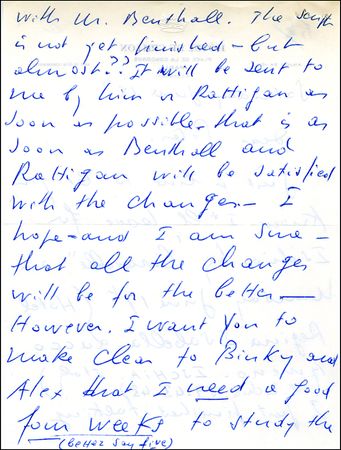 with Mr. Benthall. The script
is not yet finished - but
almost?? It will be sent to
me by him or Rattigan as
soon as possible. that is as
soon as Benthall and
Rattigan will be satisfied
with the changes - I
hope - and I am sure -
that all the changes
will be for the better -
However. I want You to
make clear to Binky and
Alex that I need a good
four weeks to study the
(Better say five)